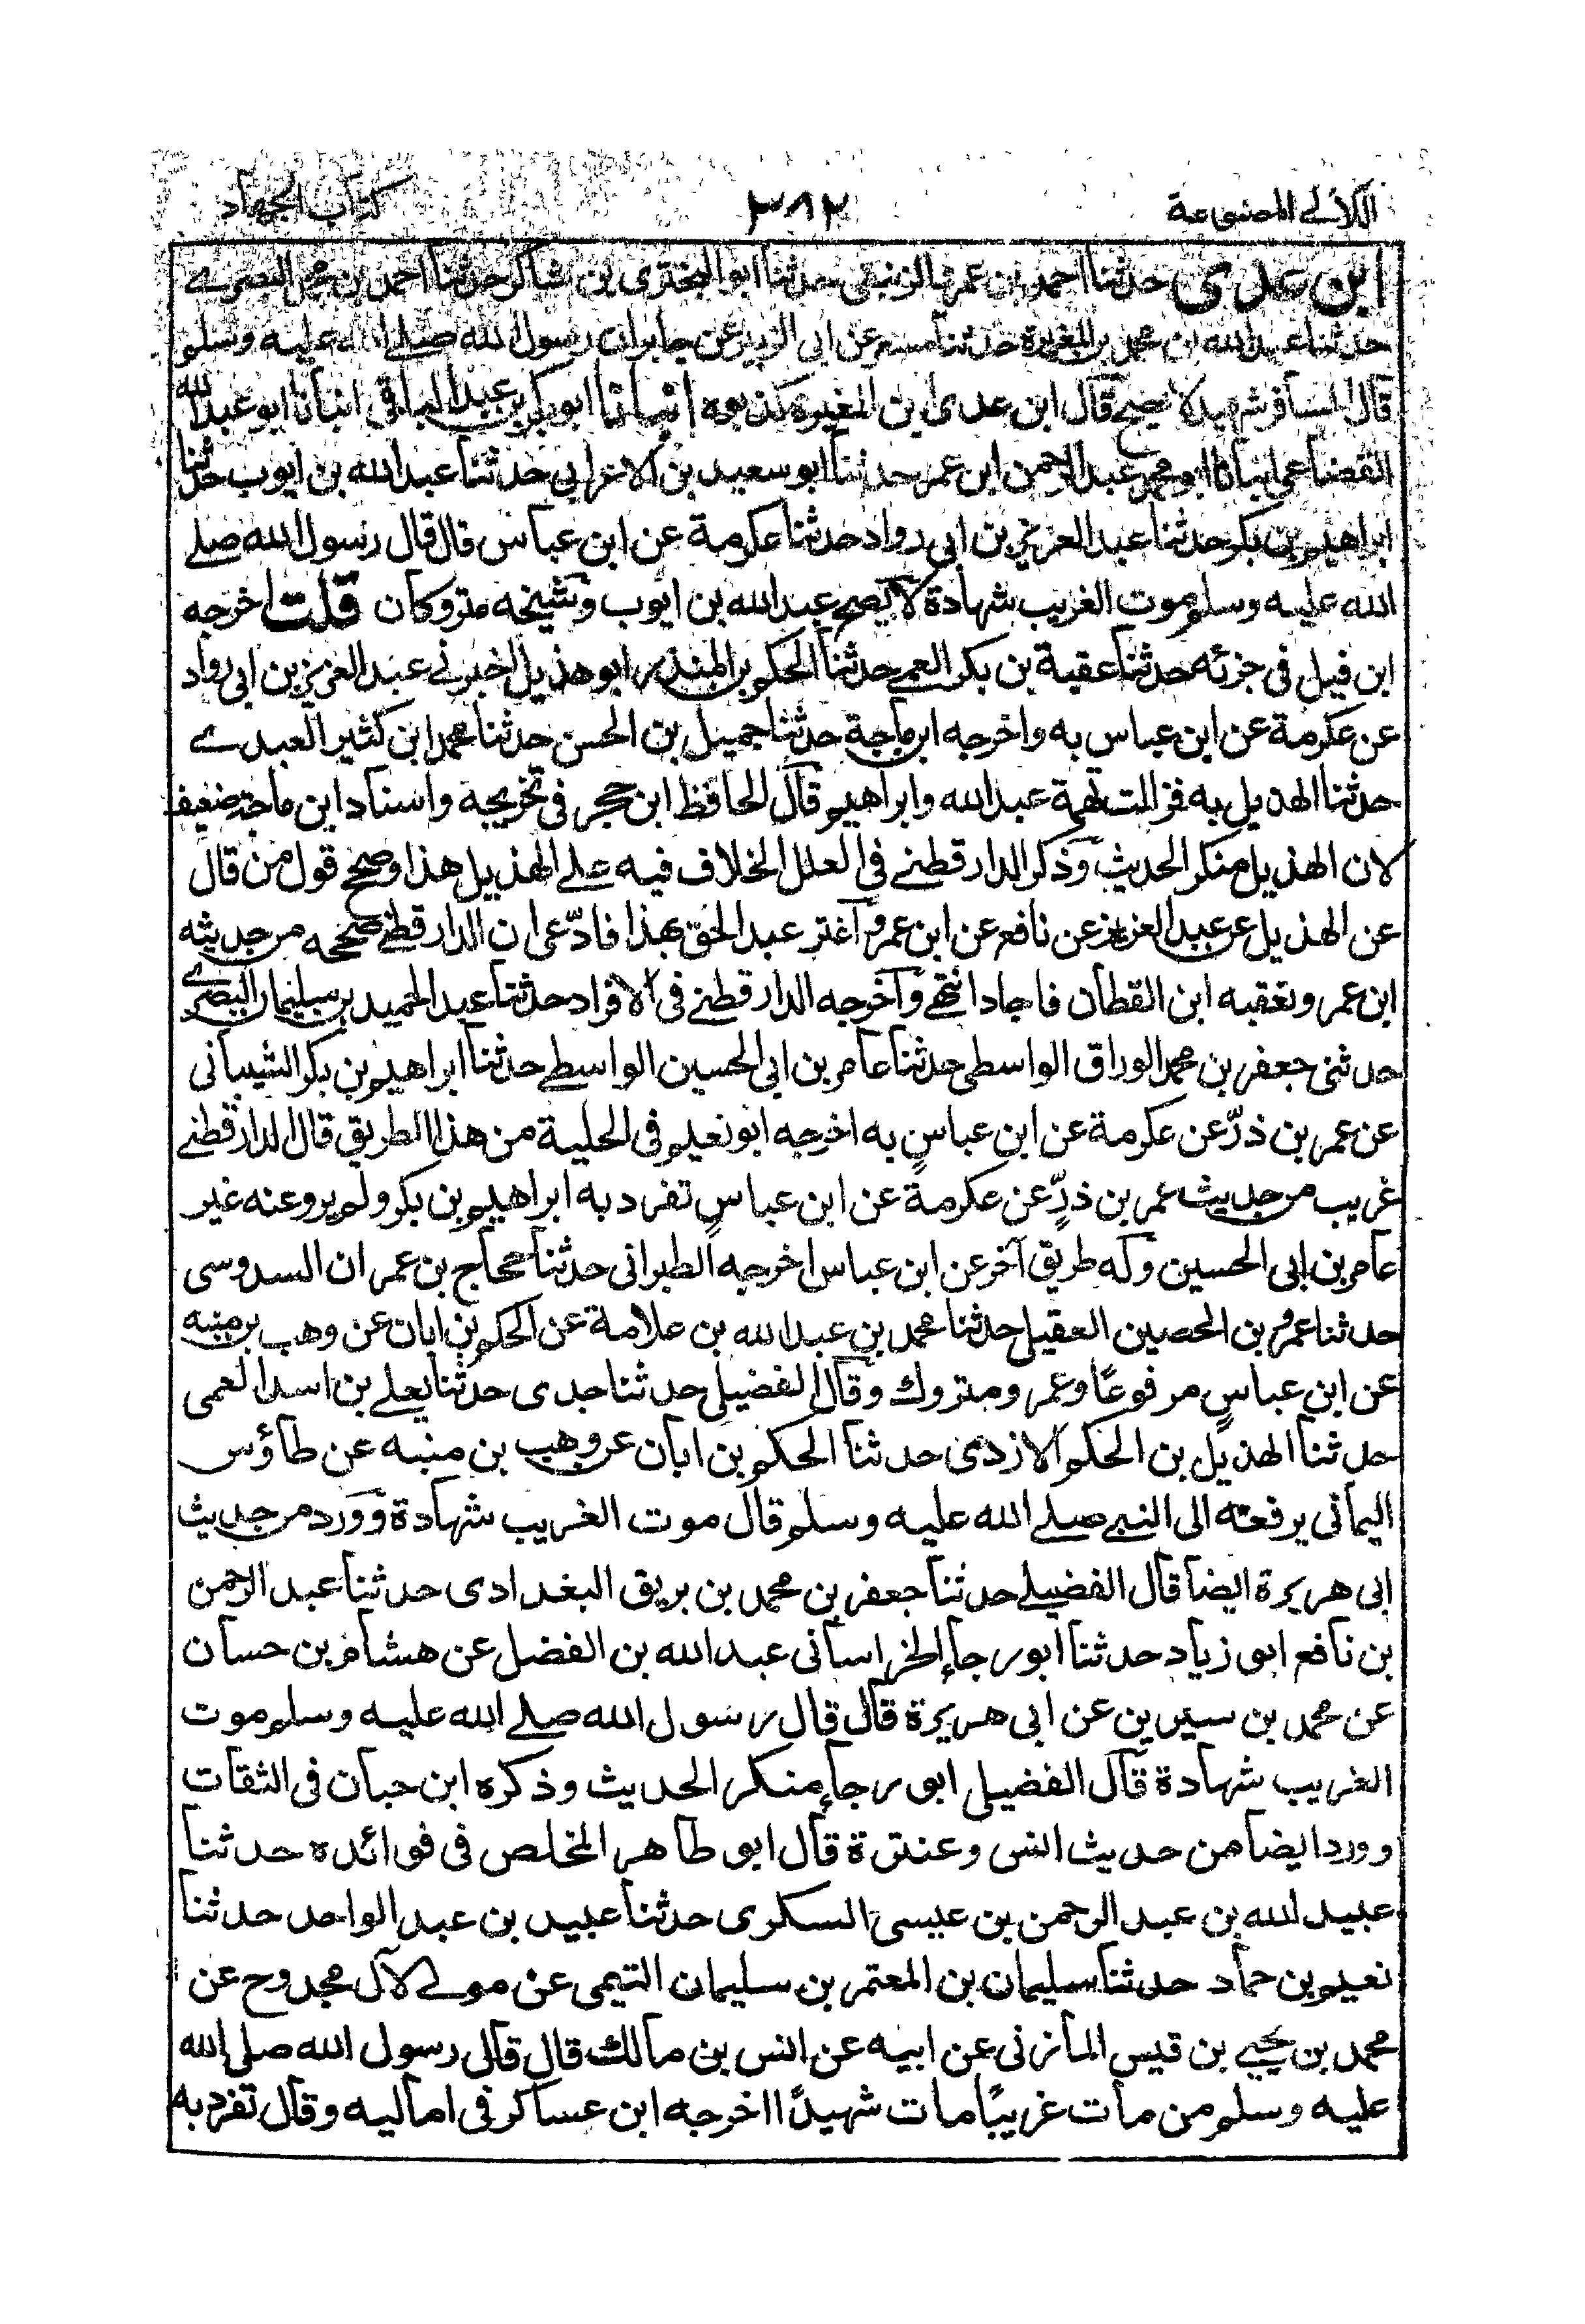 اللآلئ المصنوعة ٣٨٢ كتاب الجهاد
ابن عدى حدثنا احمد بن عمر الزنبقى حدثنا ابو البخترى بن شاكر حدثنا احمد بن محمد البصرے
حدثنا عبد الله بن محمد بن المغيرة حدثنا مسعر عن ابى الزبير عن جابر ان رسول الله صلے الله عليه وسلم
قال المسافر شهيد لا يصح قال ابن عدى ابن المغيرة كذبوه انبانا ابو بكر بن عبد الباقى انبانا ابو عبد الله
القضاعى انبانا ابو محمد عبد الرحمن ابن عمر حدثنا ابو سعيد بن الاعرابى حدثنا عبد الله بن ايوب حدثنا
ابراهيم بن بكر حدثنا عبد العزيز بن ابى رواد حدثنا عكرمة عن ابن عباس قال قال رسول الله صلے
الله عليه وسلم موت الغريب شهادة لا يصح عبد الله بن ايوب وشيخه متروكان قلت اخرجه
ابن فيل فى جزئه حدثنا عقبة بن بكر العمے حدثنا الحكم بن المنذر ابو هذيل اخبرنے عبد العزيز بن ابى رواد
عن عكرمة عن ابن عباس به واخرجه ابن ماجة حدثنا جميل بن الحسن حدثنا محمد ابن كثير العبدے
حدثنا الهذيل به فزالت تهمة عبد الله وابراهيم قال الحافظ ابن حجر فى تخريجه واسناد ابن ماجة ضعيف
لان الهذيل منكر الحديث وذكر الدارقطنے فى العلل الخلاف فيه علے الهذيل هذا وصحح قول من قال
عن الهذيل عن عبد العزيز عن نافع عن ابن عمر واغتر عبد الحق بهذا فادّعى ان الدارقطنے صححه من حديثه
ابن عمر وتعقبه ابن القطان فاجاد انتهے واخرجه الدارقطنے فى الافراد حدثنا عبد الحميد بن سليمان البصرے
حدثنى جعفر بن محمد الوراق الواسطى حدثنا عامر بن ابى الحسين الواسطے حدثنا ابراهيم بن بكر الشيبانى
عن عمر بن ذرّ عن عكرمة عن ابن عباسٍ به اخرجه ابو نعيم فى الحلية من هذا الطريق قال الدارقطنے
غريب من حديث عمر بن ذرٍّ عن عكرمة عن ابن عباسٍ تفرد به ابراهيم بن بكر ولم يرو عنه غير
عامر بن ابى الحسين وله طريق آخر عن ابن عباس اخرجه الطبرانى حدثنا حجاج بن عمران السدوسى
حدثنا عمرو بن الحصين العقيلى حدثنا محمد بن عبد الله بن علامة عن الحكم بن ابان عن وهب بن منبه
عن ابن عباسٍ مرفوعًا وعمرو متروك وقال الفضيلى حدثنا جدى حدثنا يعلے بن اسد العمى
حدثنا الهذيل بن الحكم الازدى حدثنا الحكم بن ابان عن وهب بن منبه عن طاؤس
اليمانى يرفعه الى النبے صلے الله عليه وسلم قال موت الغريب شهادة وورد من حديث
ابى هريرة ايضا قال الفضيلے حدثنا جعفر بن محمد بن بريق البغدادى حدثنا عبد الرحمن
بن نافع ابو زياد حدثنا ابو رجاء الخراسانى عبد الله بن الفضل عن هشام بن حسان
عن محمد بن سيرين عن ابى هريرة قال قال رسول الله صلے الله عليه وسلم موت
الغريب شهادة قال الفضيلى ابو رجاء منكر الحديث وذكره ابن حبان فى الثقات
وورد ايضا من حديث انس وعنترة قال ابو طاهر المخلص فى فوائده حدثنا
عبيد الله بن عبد الرحمن بن عيسى السكرى حدثنا عبيد بن عبد الواحد حدثنا
نعيم بن حماد حدثنا سليمان بن المعتمر بن سليمان التيمى عن مولے لآل مجدوح عن
محمد بن يحيے بن قيس المازنى عن ابيه عن انس بن مالك قال قال رسول الله صلى الله
عليه وسلم من مات غريبًا مات شهيدًا اخرجه ابن عساكر فى اماليه وقال تفرد به